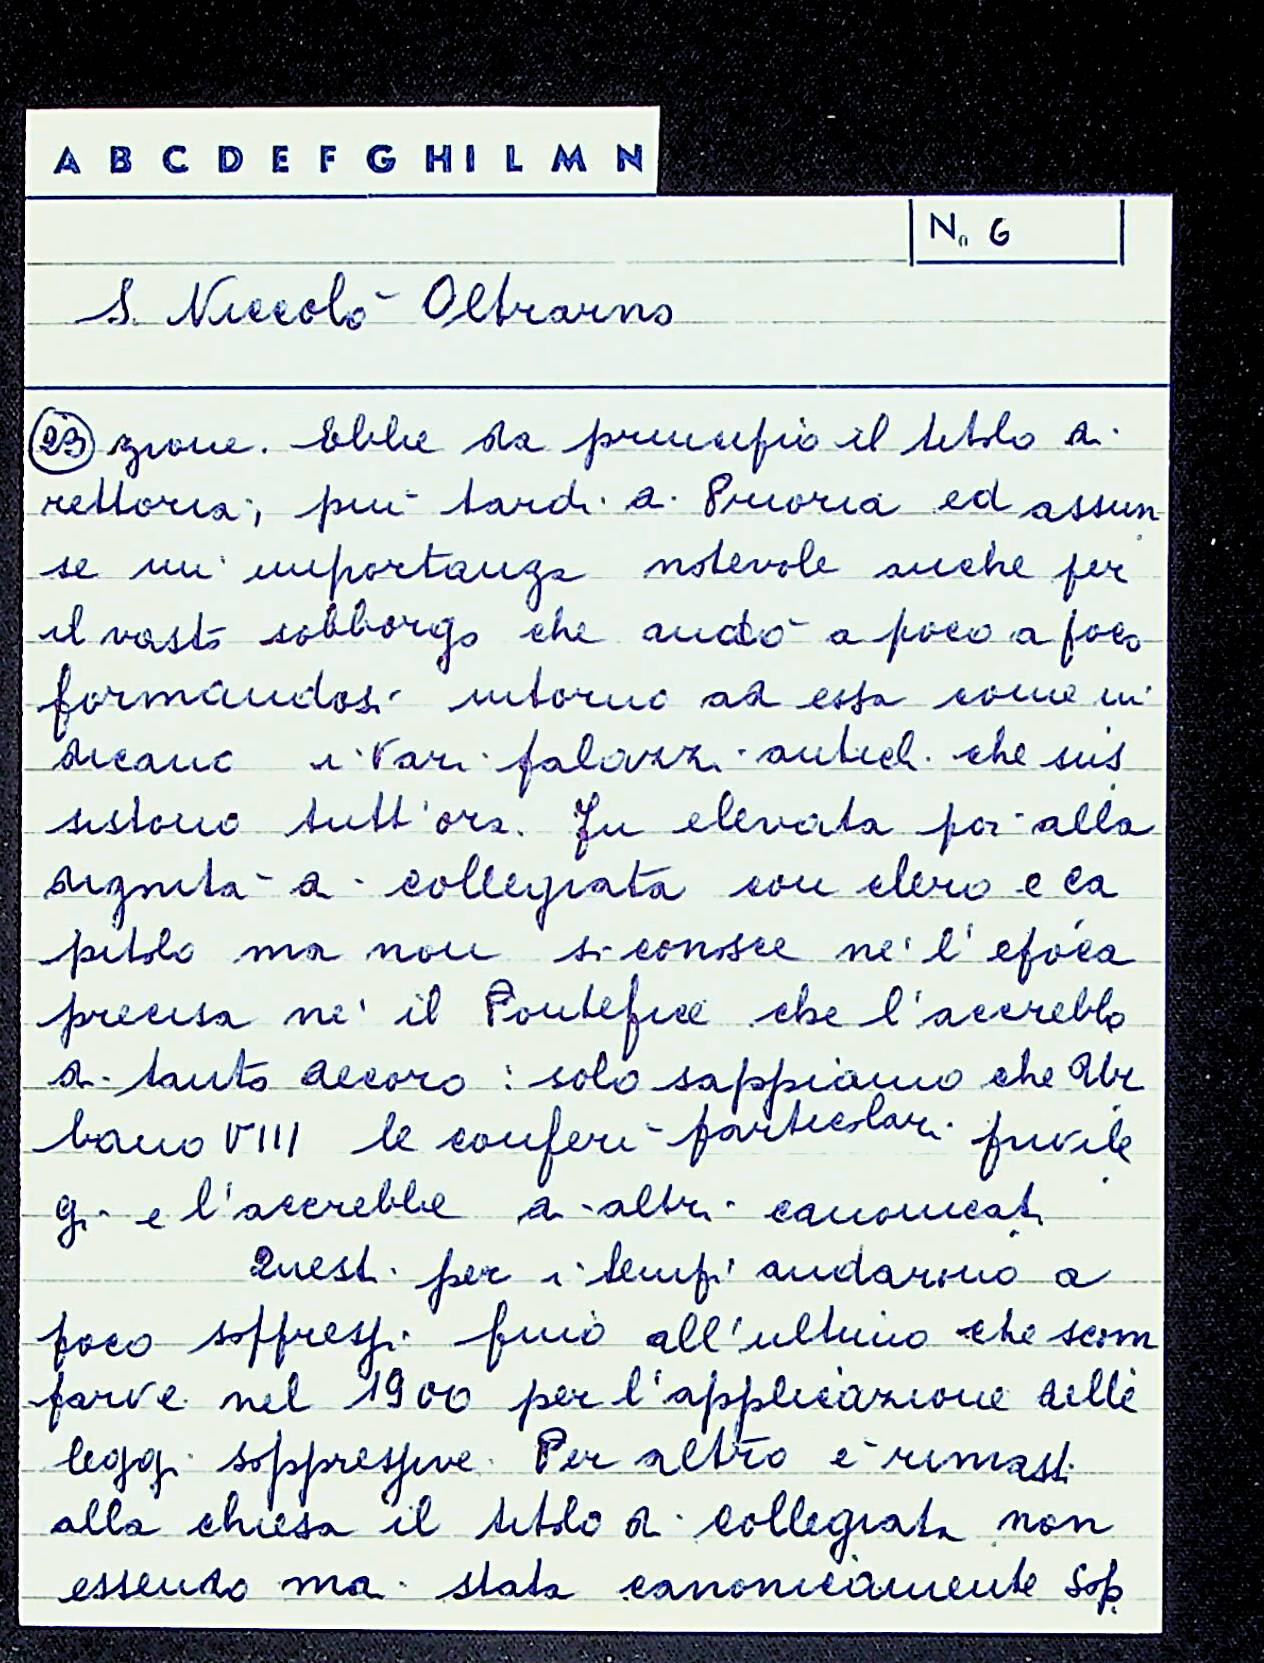 A B C D E F G H I L M N
N. 6
S. Niccolò Oltrarno
23 zione. Ebbe da principio il titolo di
rettoria, più tardi di Prioria ed assun
se un'importanza notevole anche per
il vasto sobborgo che andò a poco a poco
formandosi intorno ad essa come in
dicano i vari palazzi antichi che sus
sistono tutt'ora. Fu elevata poi alla
dignità di collegiata con clero e ca
pitolo ma non si conosce né l'epoca
precisa né il Pontefice che l'accrebbe
di tanto decoro: solo sappiamo che Ur
bano VIII le conferì particolari privile
gi e l'accrebbe di altri canonicati
Questi per i tempi andarono a
poco soppressi fino all'ultimo che scom
parve nel 1900 per l'applicazione delle
leggi soppressive. Per altro è rimasti
alla chiesa il titolo di collegiata non
essendo mai stata canonicamente sop